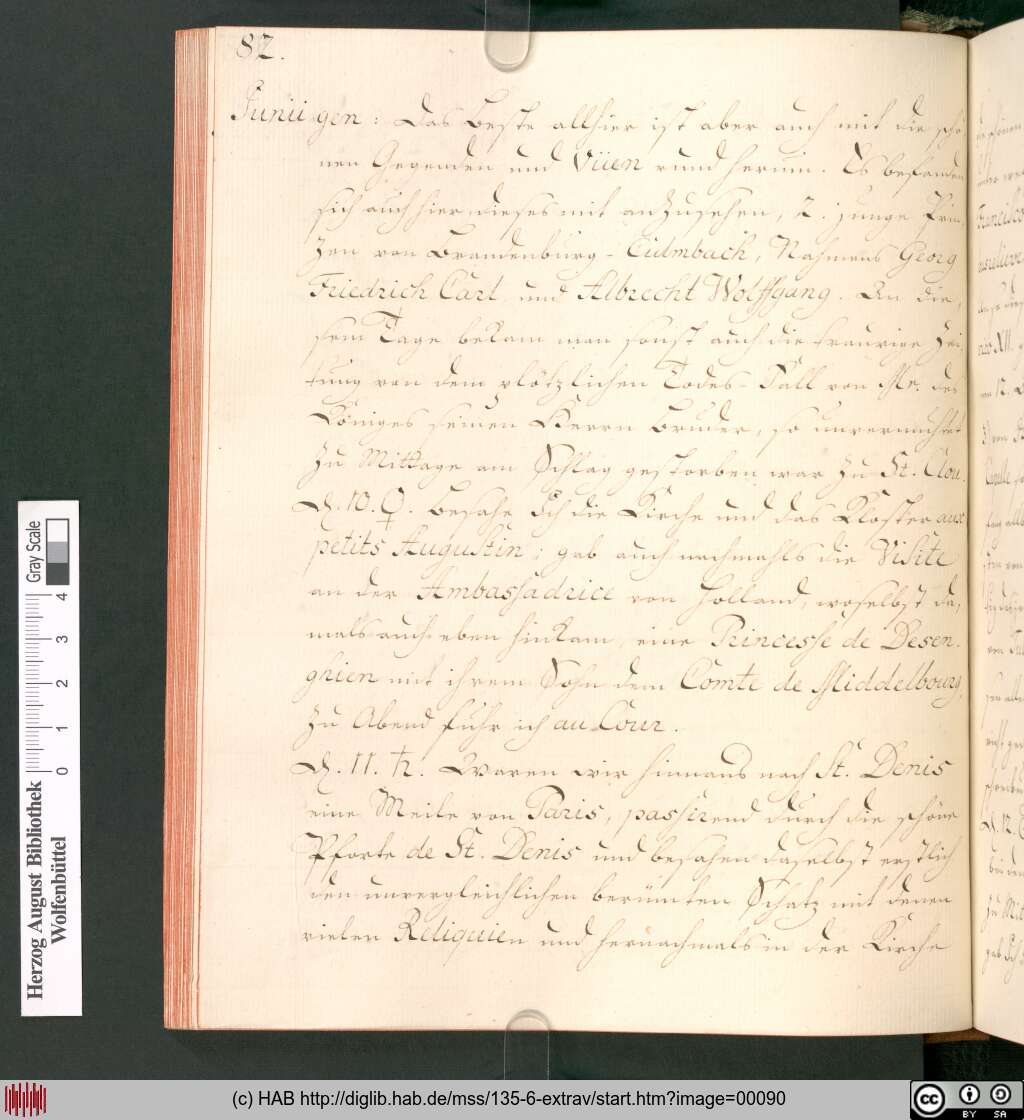 82.
Junii gen: Das beste allhier ist aber auch mit die schö
nen Gegenden und Vüen rund herum. Es befanden
sich auch hier dieses mit anzusehen, 2. junge Prin-
zen von Brandenburg-Culmbach, Nahmens Georg
Friedrich Carl und Albrecht Wolffgang. An die,
sem Tage bekam man sonst auch die traurige Zei-
tung von dem plötzlichen Todes-Fall von Mr. des
Königes seinen Herrn Bruder, so unvermuhtet
zu Mittage am Schlag gestorben war zu St. Clou.
D. 10. ♀. besahe Ich die Kirche und das Kloster aux
petits Augustin; gab auch nachmahls die Visite
an der Ambassadrice von Holland, woselbst da,
mals auch eben hinkam, eine Princesse de Desen-
ghien mit ihrem Sohn dem Comte de Middelbourg,
zu Abend fuhr ich au Cour.
D. 11. ♄. Waren wir hinnaus nach St. Denis
eine Meile von Paris, passirend durch die schöne
Pforte de St. Denis und besahen daselbst erstlich
den unvergleichlichen berümten Schatz mit denen
vielen Reliquien und hernachmals in der Kirche
Herzog August Bibliothek
Wolfenbüttel
0 1 2 3 4
Gray Scale
(c) HAB http://diglib.hab.de/mss/135-6-extrav/start.htm?image=00090
cc BY SA